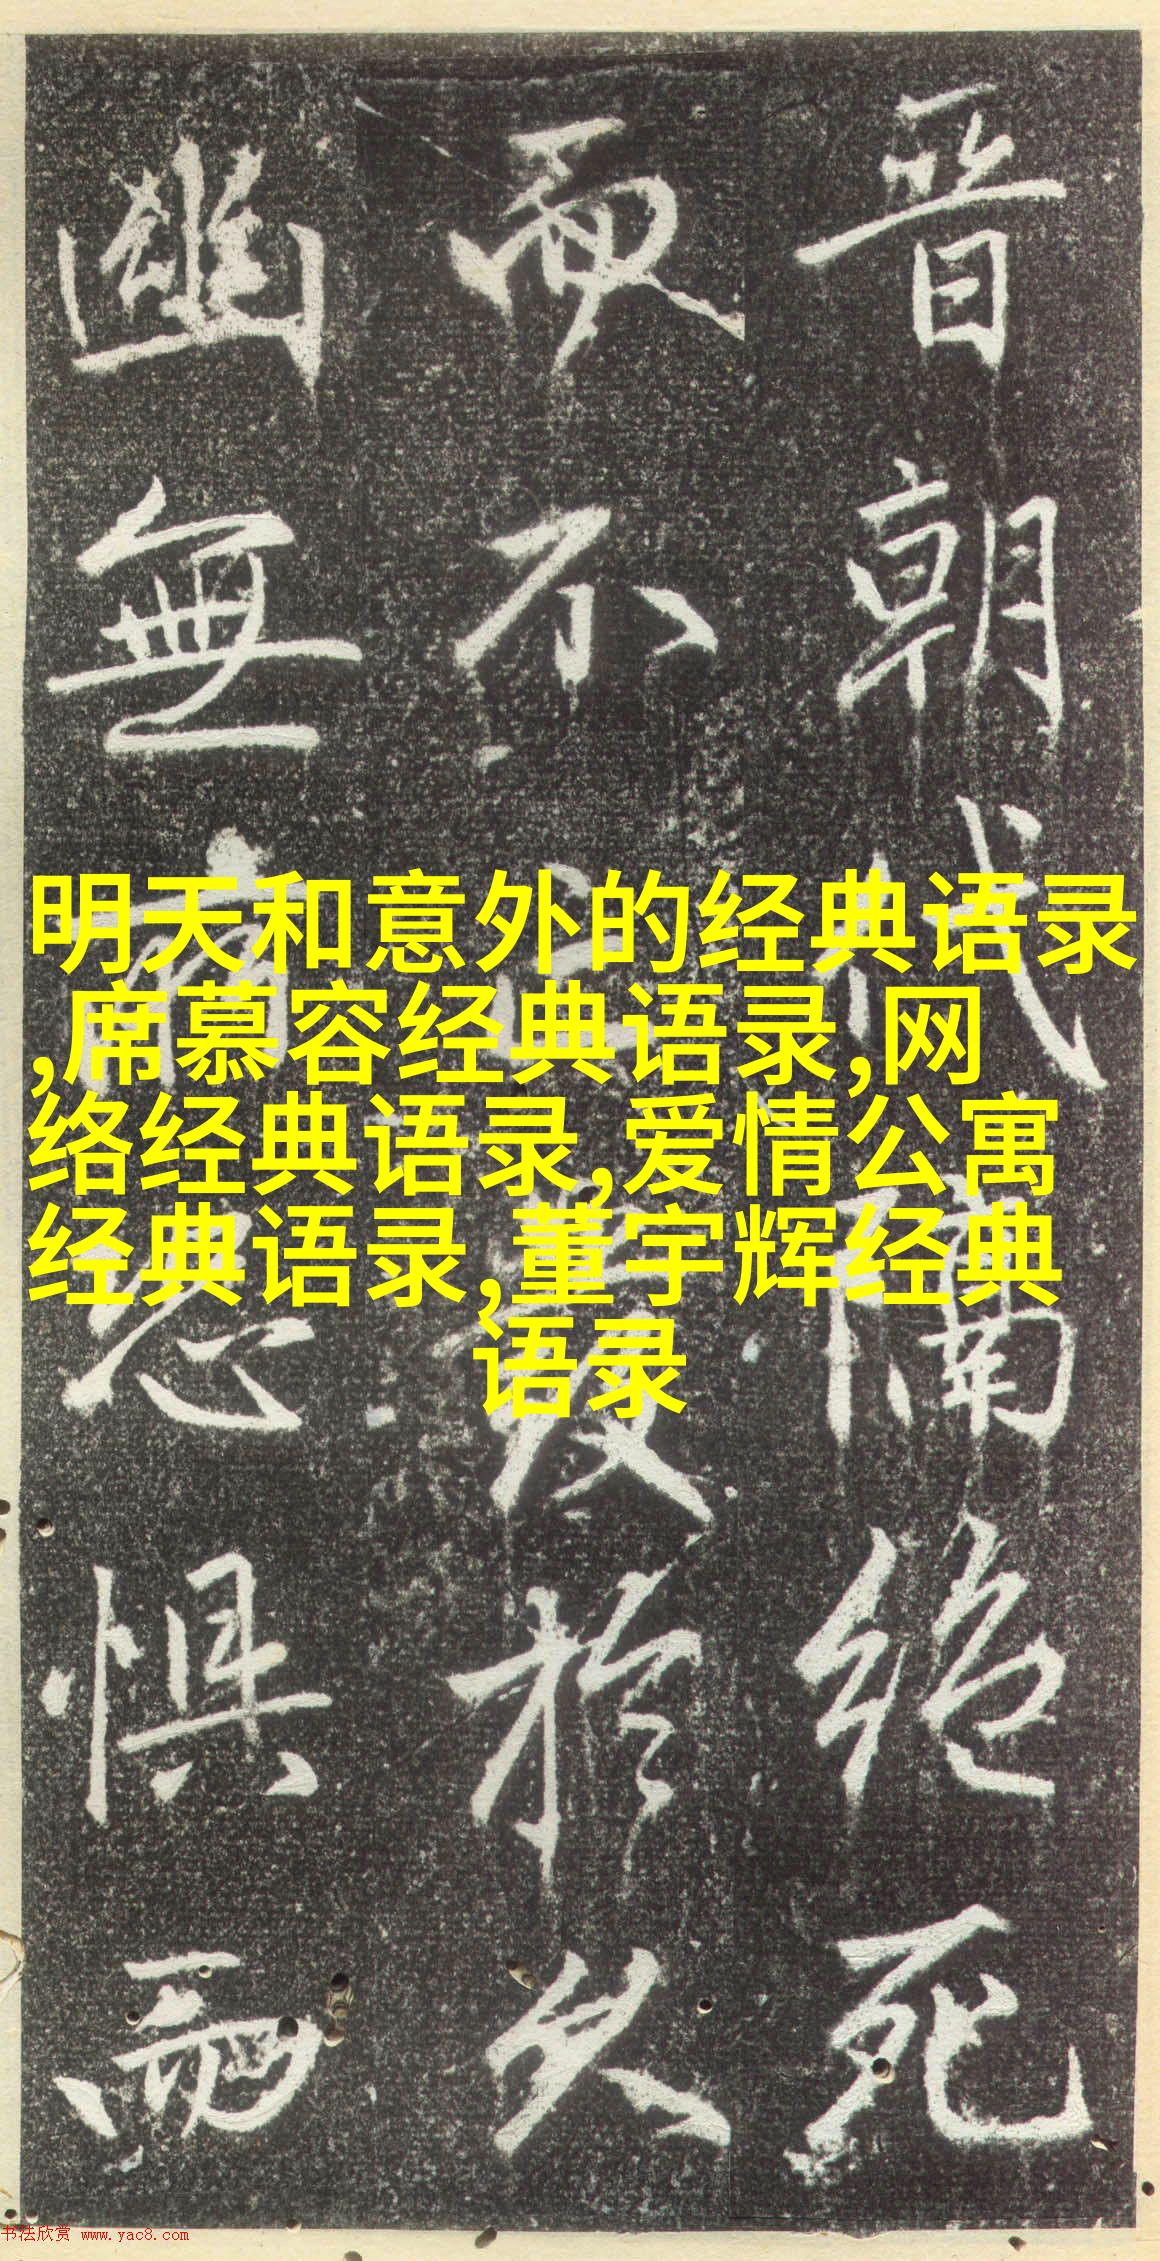 晋朝代隔絶死
不於久
幽無惧
明天和意外的经典语录
,席慕容经典语录,网
络经典语录,爱情公寓
经典语录,董宇辉经典
语录
书法欣赏 www.yac8.com